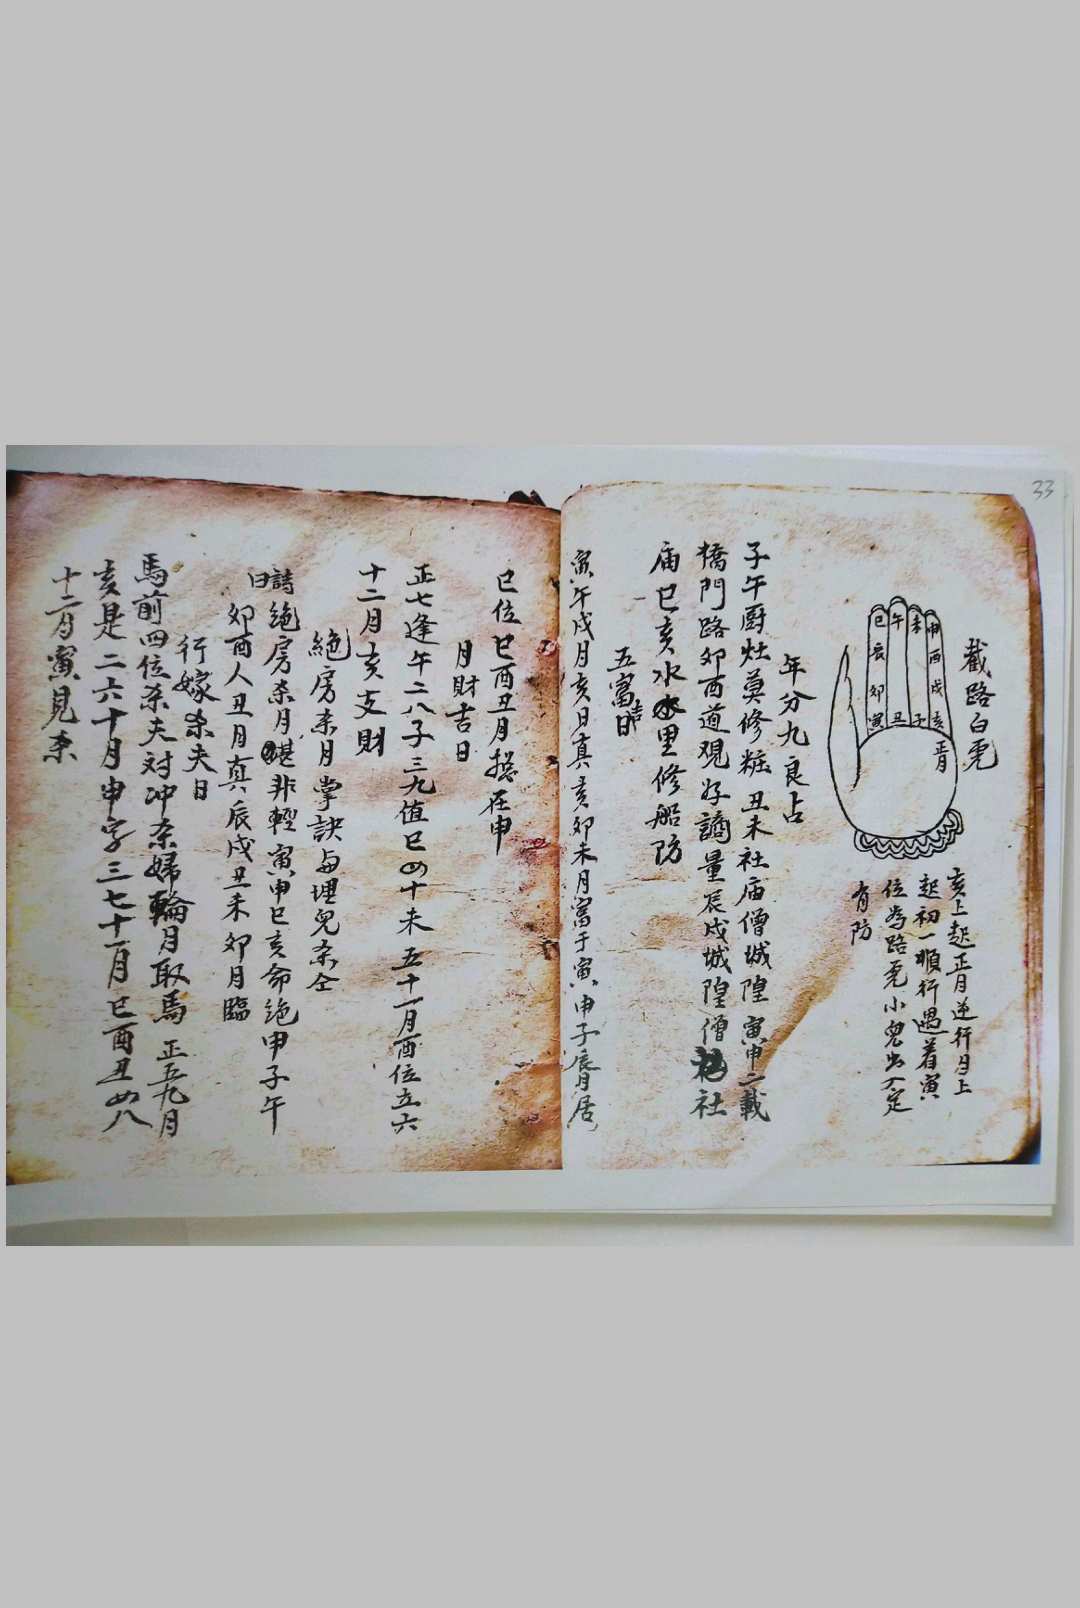 33
截路白虎
巳 午 未 申
辰 酉
卯 戌
寅 丑 子 亥
正月
亥上起正月逆行月上
起初一順行遇着寅
位為路虎小兒出入定
有防
年分九良占
子午厨灶莫修粧丑未社庙僧城隍寅申二載
橋門路卯酉道观好謫量辰戌城隍僧社
庙巳亥水里修船防
五富吉日
寅午戌月亥日真亥卯未月富于寅申子辰月居
巳位巳酉丑月揔在申
月財吉日
正七逢午二八子三九值巳四十未五十一月酉位立六
十二月亥支財
絕房杀月掌訣与埋兒杀仝
詩曰
绝房杀月堪非輕寅申巳亥命绝甲子午
卯酉人丑月真辰戌丑未卯月臨
行嫁杀夫日
馬前四位杀夫対冲杀婦輪月取馬正五九月
亥是二六十月申字三七十一月巳酉丑四八
十二月寅見杀